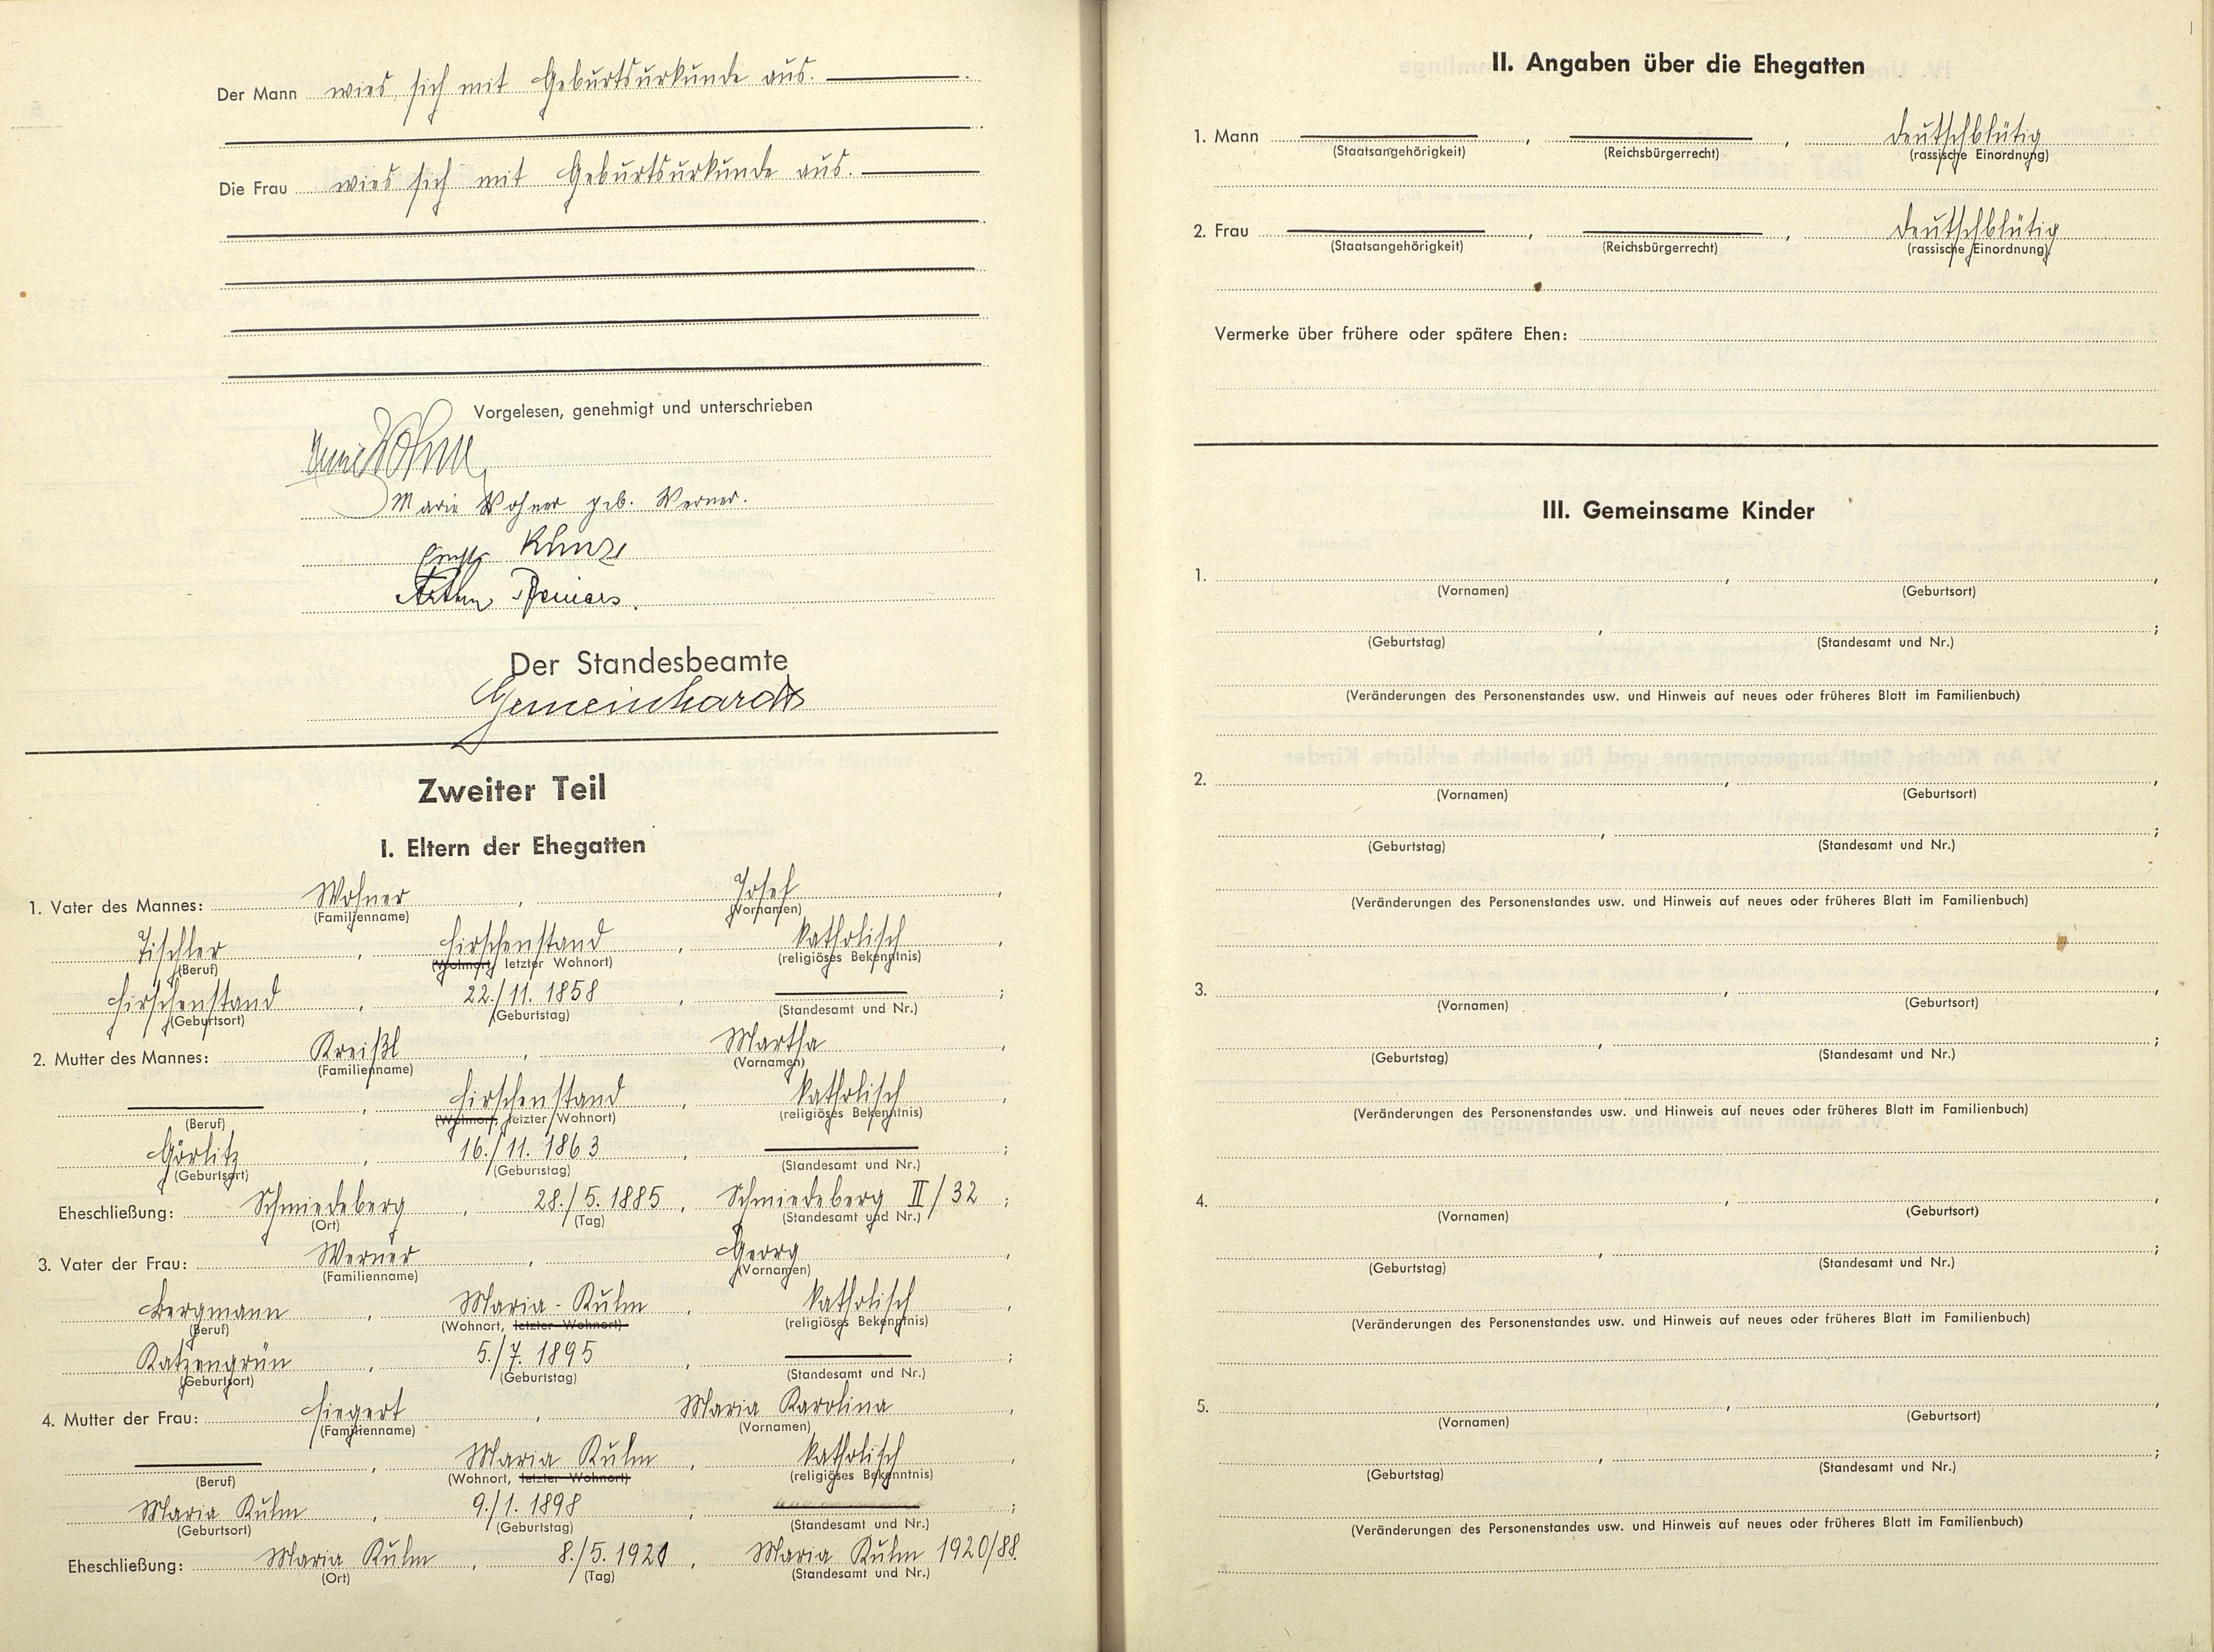 Der Mann wies sich mit Geburtsurkunde aus.
Die Frau wies sich mit Geburtsurkunde aus.
Vorgelesen, genehmigt und unterschrieben
Marie Wohner geb. Werner.
Ernst Kunze
Arthur
Der Standesbeamte
Gemeinhardt
Zweiter Teil
I. Eltern der Ehegatten
1. Vater des Mannes: Wohner, Josef,
(Familienname) (Vornamen)
Tischler, Hirschenstand, katholisch,
(Beruf) (Wohnort, letzter Wohnort) (religiöses Bekenntnis)
Hirschenstand, 22./11. 1858, ;
(Geburtsort) (Geburtstag) (Standesamt und Nr.)
2. Mutter des Mannes: Kreißl, Martha,
(Familienname) (Vornamen)
, Hirschenstand, katholisch,
(Beruf) (Wohnort, letzter Wohnort) (religiöses Bekenntnis)
Görlitz, 16./11. 1863, ;
(Geburtsort) (Geburtstag) (Standesamt und Nr.)
Eheschließung: Schmiedeberg, 28./5. 1885, Schmiedeberg II/32;
(Ort) (Tag) (Standesamt und Nr.)
3. Vater der Frau: Werner, Georg,
(Familienname) (Vornamen)
Bergmann, Maria-Kulm, katholisch,
(Beruf) (Wohnort, letzter Wohnort) (religiöses Bekenntnis)
Katzengrün, 5./7. 1895, ;
(Geburtsort) (Geburtstag) (Standesamt und Nr.)
4. Mutter der Frau: Siegert, Maria Karolina,
(Familienname) (Vornamen)
, Maria Kulm, katholisch,
(Beruf) (Wohnort, letzter Wohnort) (religiöses Bekenntnis)
Maria Kulm, 9./1. 1898, ;
(Geburtsort) (Geburtstag) (Standesamt und Nr.)
Eheschließung: Maria Kulm, 8./5. Maria Kulm 1920/88.
(Ort) (Tag) (Standesamt und Nr.)
II. Angaben über die Ehegatten
1. Mann , , deutschblütig
(Staatsangehörigkeit) (Reichsbürgerrecht) (rassische Einordnung)
2. Frau , , deutschblütig
(Staatsangehörigkeit) (Reichsbürgerrecht) (rassische Einordnung)
Vermerke über frühere oder spätere Ehen:
III. Gemeinsame Kinder
1. , ,
(Vornamen) (Geburtsort)
, ;
(Geburtstag) (Standesamt und Nr.)
(Veränderungen des Personenstandes usw. und Hinweis auf neues oder früheres Blatt im Familienbuch)
2. , ,
(Vornamen) (Geburtsort)
, ;
(Geburtstag) (Standesamt und Nr.)
(Veränderungen des Personenstandes usw. und Hinweis auf neues oder früheres Blatt im Familienbuch)
3. , ,
(Vornamen) (Geburtsort)
, ;
(Geburtstag) (Standesamt und Nr.)
(Veränderungen des Personenstandes usw. und Hinweis auf neues oder früheres Blatt im Familienbuch)
4. , ,
(Vornamen) (Geburtsort)
, ;
(Geburtstag) (Standesamt und Nr.)
(Veränderungen des Personenstandes usw. und Hinweis auf neues oder früheres Blatt im Familienbuch)
5. , ,
(Vornamen) (Geburtsort)
, ;
(Geburtstag) (Standesamt und Nr.)
(Veränderungen des Personenstandes usw. und Hinweis auf neues oder früheres Blatt im Familienbuch)